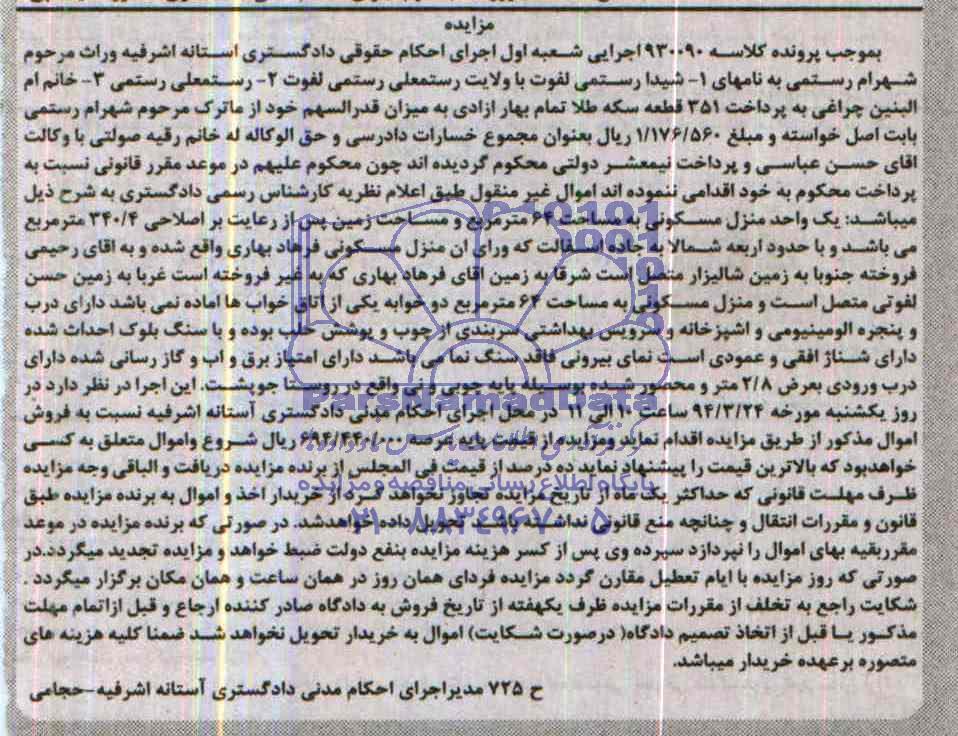 مزایده
بموجب پرونده کلاسه ۹۳۰۰۹۰ اجرایی شعبه اول اجرای احکام حقوقی دادگستری آستانه اشرفیه وراث مرحوم
شهرام رستمی به نامهای ۱- شیدا رستمی لفوت با ولایت رستمعلی رستمی لفوت ۲- رستمعلی رستمی ۳- خانم ام
البنین چراغی به پرداخت ۳۵۱ قطعه سکه طلا تمام بهار ازادی به میزان قدرالسهم خود از ماترک مرحوم شهرام رستمی
بابت اصل خواسته و مبلغ ۱/۱۷۶/۵۶۰ ریال بعنوان مجموع خسارات دادرسی و حق الوکاله له خانم رقیه صولتی با وکالت
اقای حسن عباسی و پرداخت نیمعشر دولتی محکوم گردیده اند چون محکوم علیهم در موعد مقرر قانونی نسبت به
پرداخت محکوم به خود اقدامی ننموده اند اموال غیر منقول طبق اعلام نظریه کارشناس رسمی دادگستری به شرح ذیل
میباشد: یک واحد منزل مسکونی به مساحت ۶۴ مترمربع و مساحت زمین پس از رعایت بر اصلاحی ۳۴۰/۴ مترمربع
می باشد و با حدود اربعه شمالا به جاده اسفالت که ورای ان منزل مسکونی فرهاد بهاری واقع شده و به اقای رحیمی
فروخته جنوبا به زمین شالیزار متصل است شرقا به زمین اقای فرهاد بهاری که به غیر فروخته است غربا به زمین حسن
لفوتی متصل است و منزل مسکونی به مساحت ۶۴ مترمربع دو خوابه یکی از اتاق خواب ها اماده نمی باشد دارای درب
و پنجره الومینیومی و اشپزخانه و سرویس بهداشتی سربندی از چوب و پوشش حلب بوده و با سنگ بلوک احداث شده
دارای شناژ افقی و عمودی است نمای بیرونی فاقد سنگ نما می باشد دارای امتیاز برق و اب و گاز رسانی شده دارای
درب ورودی بعرض ۲/۸ متر و محصور شده بوسیله پایه چوبی و نی واقع در روستا جوپشت. این اجرا در نظر دارد در
روز یکشنبه مورخه ۹۴/۳/۲۴ ساعت ۱۰ الی ۱۱ در محل اجرای احکام مدنی دادگستری آستانه اشرفیه نسبت به فروش
اموال مذکور از طریق مزایده اقدام نماید ومزایده از قیمت پایه عرصه ۶۹۴/۴۴۰/۰۰۰ ریال شروع واموال متعلق به کسی
خواهدبود که بالاترین قیمت را پیشنهاد نماید ده درصد از قیمت فی المجلس از برنده مزایده دریافت و الباقی وجه مزایده
ظرف مهلت قانونی که حداکثر یک ماه از تاریخ مزایده تجاوز نخواهد کرد از خریدار اخذ و اموال به برنده مزایده طبق
قانون و مقررات انتقال و چنانچه منع قانونی نداشته باشد تحویل داده خواهدشد. در صورتی که برنده مزایده در موعد
مقرربقیه بهای اموال را نپردازد سپرده وی پس از کسر هزینه مزایده بنفع دولت ضبط خواهد و مزایده تجدید میگردد.در
صورتی که روز مزایده با ایام تعطیل مقارن گردد مزایده فردای همان روز در همان ساعت و همان مکان برگزار میگردد .
شکایت راجع به تخلف از مقررات مزایده ظرف یکهفته از تاریخ فروش به دادگاه صادر کننده ارجاع و قبل ازاتمام مهلت
مذکور یا قبل از اتخاذ تصمیم دادگاه( درصورت شکایت) اموال به خریدار تحویل نخواهد شد ضمنا کلیه هزینه های
متصوره برعهده خریدار میباشد.
ح ۷۲۵ مدیراجرای احکام مدنی دادگستری آستانه اشرفیه-حجامی
ParsNamadData
پایگاه اطلاع رسانی مناقصه و مزایده
۰۲۱-۸۸۳۴۹۶۷۰-۵